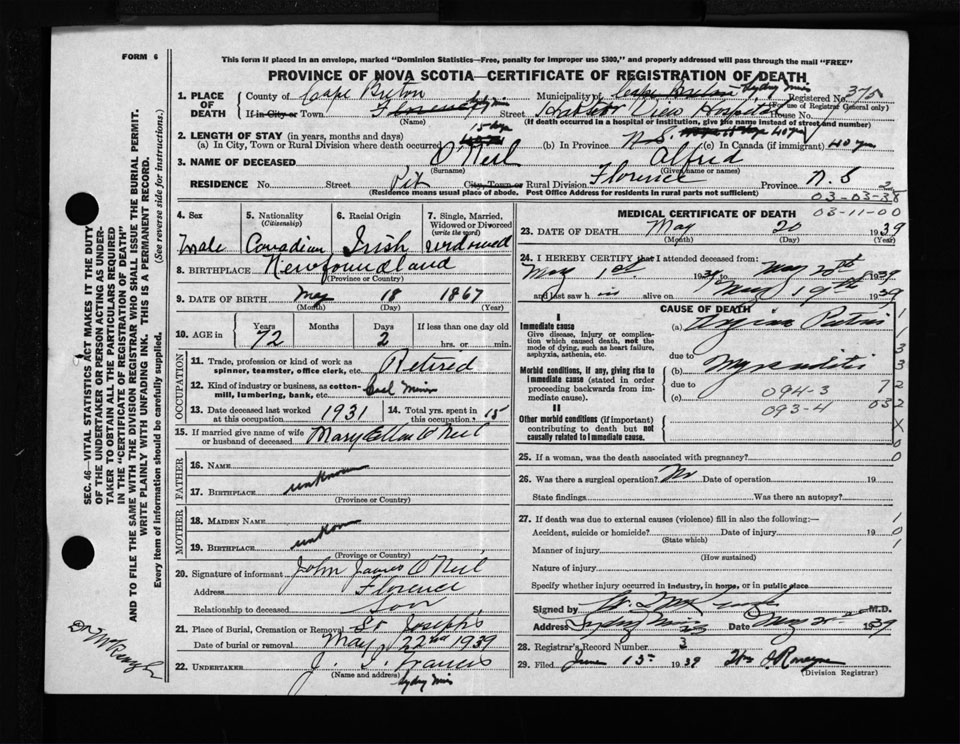 FORM 6
This form if placed in an envelope, marked "Dominion Statistics—Free, penalty for improper use $300," and properly addressed will pass through the mail "FREE"
PROVINCE OF NOVA SCOTIA—CERTIFICATE OF REGISTRATION OF DEATH
1. PLACE OF DEATH
County of Cape Breton Municipality of Cape Breton Sydney Mines Registered No. 375
(For use of Registrar General only)
If in City or Town Florence Street Harbor View Hospital House No.
(Name) (If death occurred in a hospital or institution, give the name instead of street and number)
2. LENGTH OF STAY (in years, months and days)
(a) In City, Town or Rural Division where death occurred 15 (b) In Province N.S. 40 yrs (c) In Canada (if immigrant) 40 yrs
3. NAME OF DECEASED O'Neil Alfred
(Surname) (Given name or names)
RESIDENCE No. Street Pit City, Town or Rural Division Florence Province N.S
(Residence means usual place of abode. Post Office Address for residents in rural parts not sufficient)
2
03-03-38
03-11-00
4. Sex
Male
5. Nationality
(Citizenship)
Canadian
6. Racial Origin
Irish
7. Single, Married, Widowed or Divorced
(write the word)
widowed
8. BIRTHPLACE Newfoundland
(Province or Country)
9. DATE OF BIRTH May 18 1867
(Month) (Day) (Year)
10. AGE in
Years Months Days If less than one day old
72 2 hrs. or min.
OCCUPATION
11. Trade, profession or kind of work as spinner, teamster, office clerk, etc. Retired
12. Kind of industry or business, as cotton-mill, lumbering, bank, etc. Coal Mines
13. Date deceased last worked at this occupation 1931
14. Total yrs. spent in this occupation 15
15. If married give name of wife or husband of deceased Mary Ellen O'Neil
FATHER
16. NAME
17. BIRTHPLACE unknown
(Province or Country)
MOTHER
18. MAIDEN NAME
19. BIRTHPLACE unknown
(Province or Country)
20. Signature of informant John James O'Neil
Address Florence
Relationship to deceased Son
21. Place of Burial, Cremation or Removal St Joseph's
Date of burial or removal May 22nd 1939
22. UNDERTAKER J. J. Francis
(Name and address)
Sydney Mines
MEDICAL CERTIFICATE OF DEATH
23. DATE OF DEATH May 20 1939
(Month) (Day) (Year)
24. I HEREBY CERTIFY that I attended deceased from:
May 1st 1939 to May 20th 1939
and last saw him alive on May 19th 1939
CAUSE OF DEATH
I
Immediate cause
Give disease, injury or complication which caused death, not the mode of dying, such as heart failure, asphyxia, asthenia, etc.
(a) Angina Pectoris
due to
Morbid conditions, if any, giving rise to immediate cause (stated in order proceeding backwards from immediate cause).
(b) Myocarditis
due to
(c)
094-3
093-4
II
Other morbid conditions (if important) contributing to death but not causally related to immediate cause.
1
1
3
3
72
032
X
0
0
25. If a woman, was the death associated with pregnancy?
26. Was there a surgical operation? No Date of operation 19
State findings Was there an autopsy?
27. If death was due to external causes (violence) fill in also the following:—
Accident, suicide or homicide? Date of injury 19
(State which)
Manner of injury
(How sustained)
Nature of injury
Specify whether injury occurred in industry, in home, or in public place
1
0
1
Signed by M.D.
Address Sydney Mines Date May 20th 1939
28. Registrar's Record Number 3
29. Filed June 15 1939
(Division Registrar)
SEC. 46—VITAL STATISTICS ACT MAKES IT THE DUTY
OF THE UNDERTAKER OR PERSON ACTING AS UNDER-
TAKER TO OBTAIN ALL THE PARTICULARS REQUIRED
IN THE "CERTIFICATE OF REGISTRATION OF DEATH"
AND TO FILE THE SAME WITH THE DIVISION REGISTRAR WHO SHALL ISSUE THE BURIAL PERMIT.
WRITE PLAINLY WITH UNFADING INK. THIS IS A PERMANENT RECORD.
Every item of information should be carefully supplied. (See reverse side for instructions.)
Dr